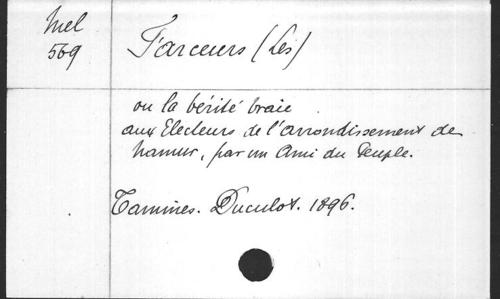 Mel
569
Farceurs (Les)
ou la vérité vraie
aux Electeurs de l'arrondissement de
Namur, par un Ami du Peuple.
Tamines. Duculot. 1896.